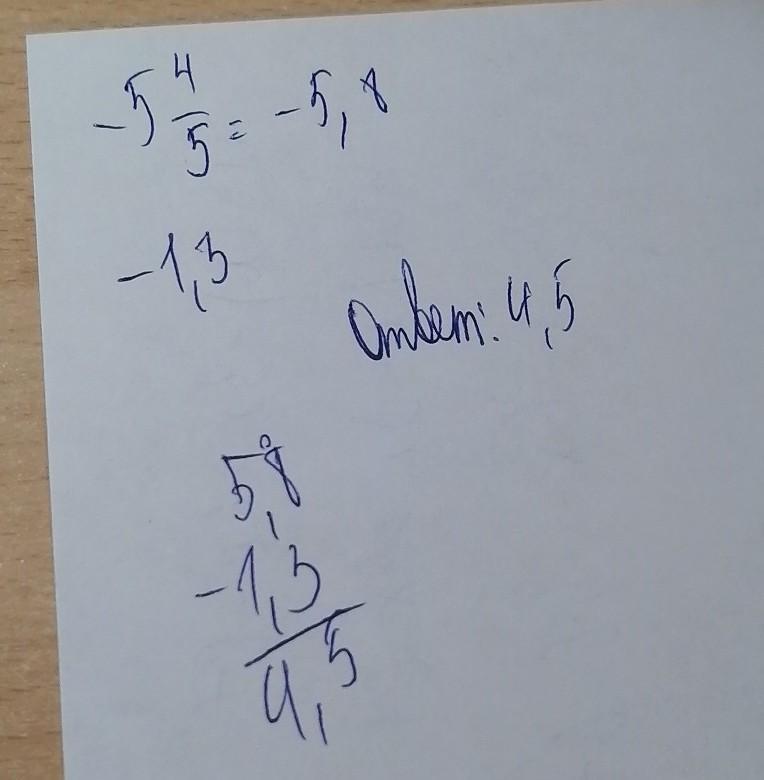 -5 4/5 = -5,8
-1,3
Ответ: 4,5
5,8
-1,3
4,5